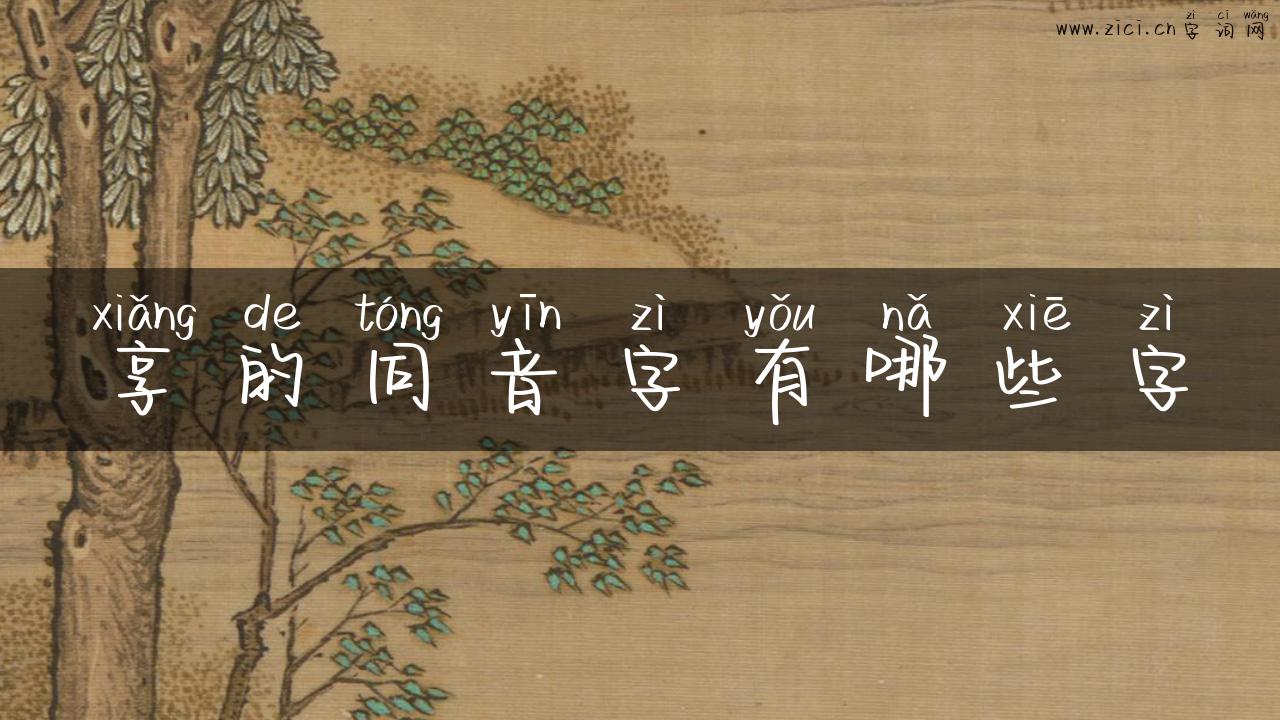 zì cí wǎng
www.zici.cn 字词网
xiǎng de tóng yīn zì yǒu nǎ xiē zì
享的同音字有哪些字